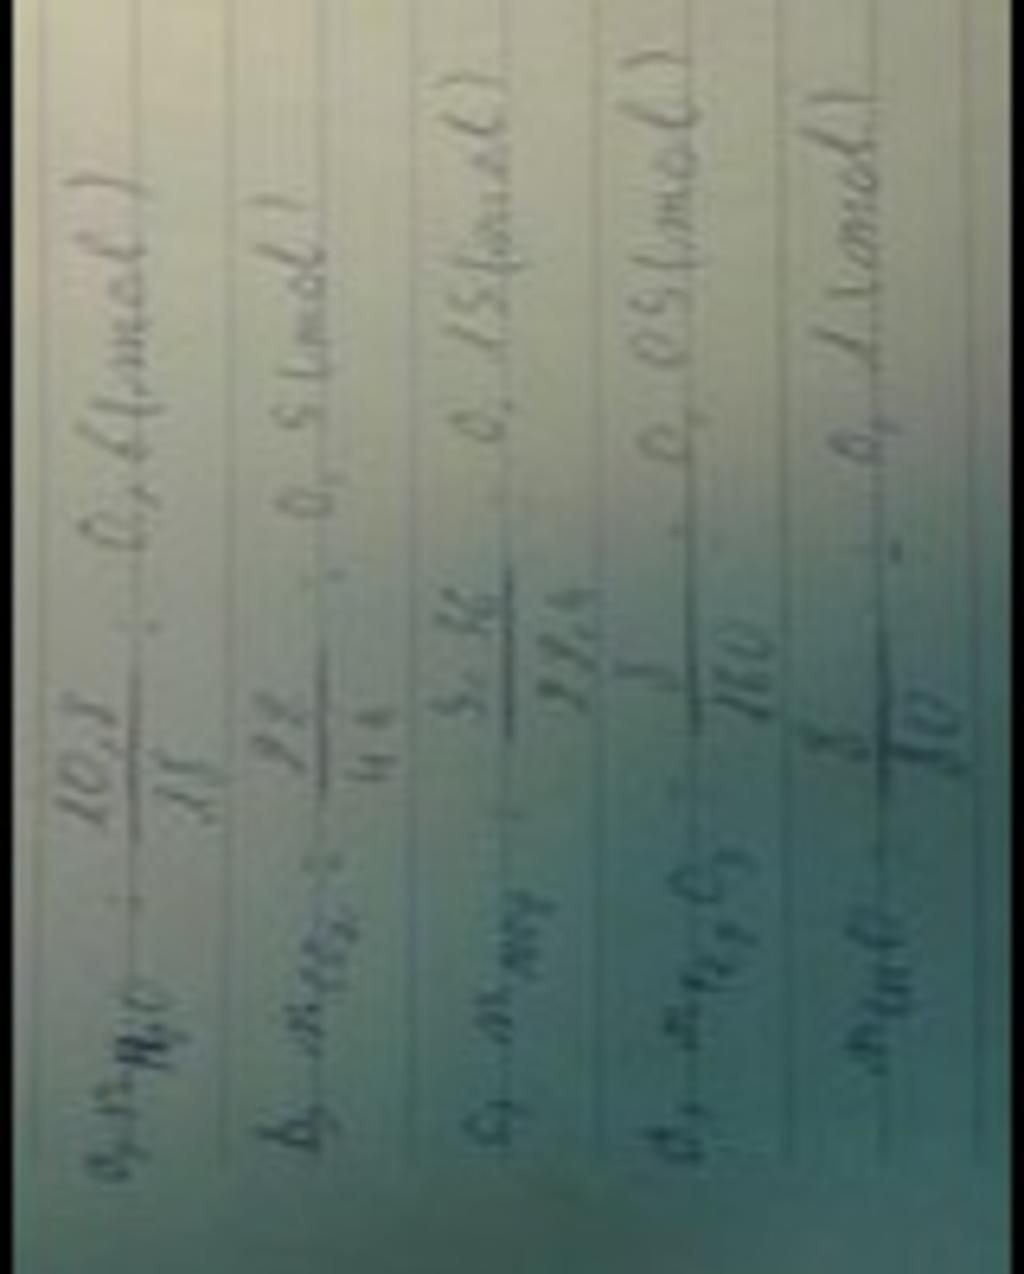 a, nH2O = 10,8 / 18 = 0,6 (mol)
b, nCO2 = 22 / 44 = 0,5 (mol)
c, n = 3,36 / 22,4 = 0,15 (mol)
d, nFe2O3 = 8 / 160 = 0,05 (mol)
nCuO = 8 / 80 = 0,1 (mol)